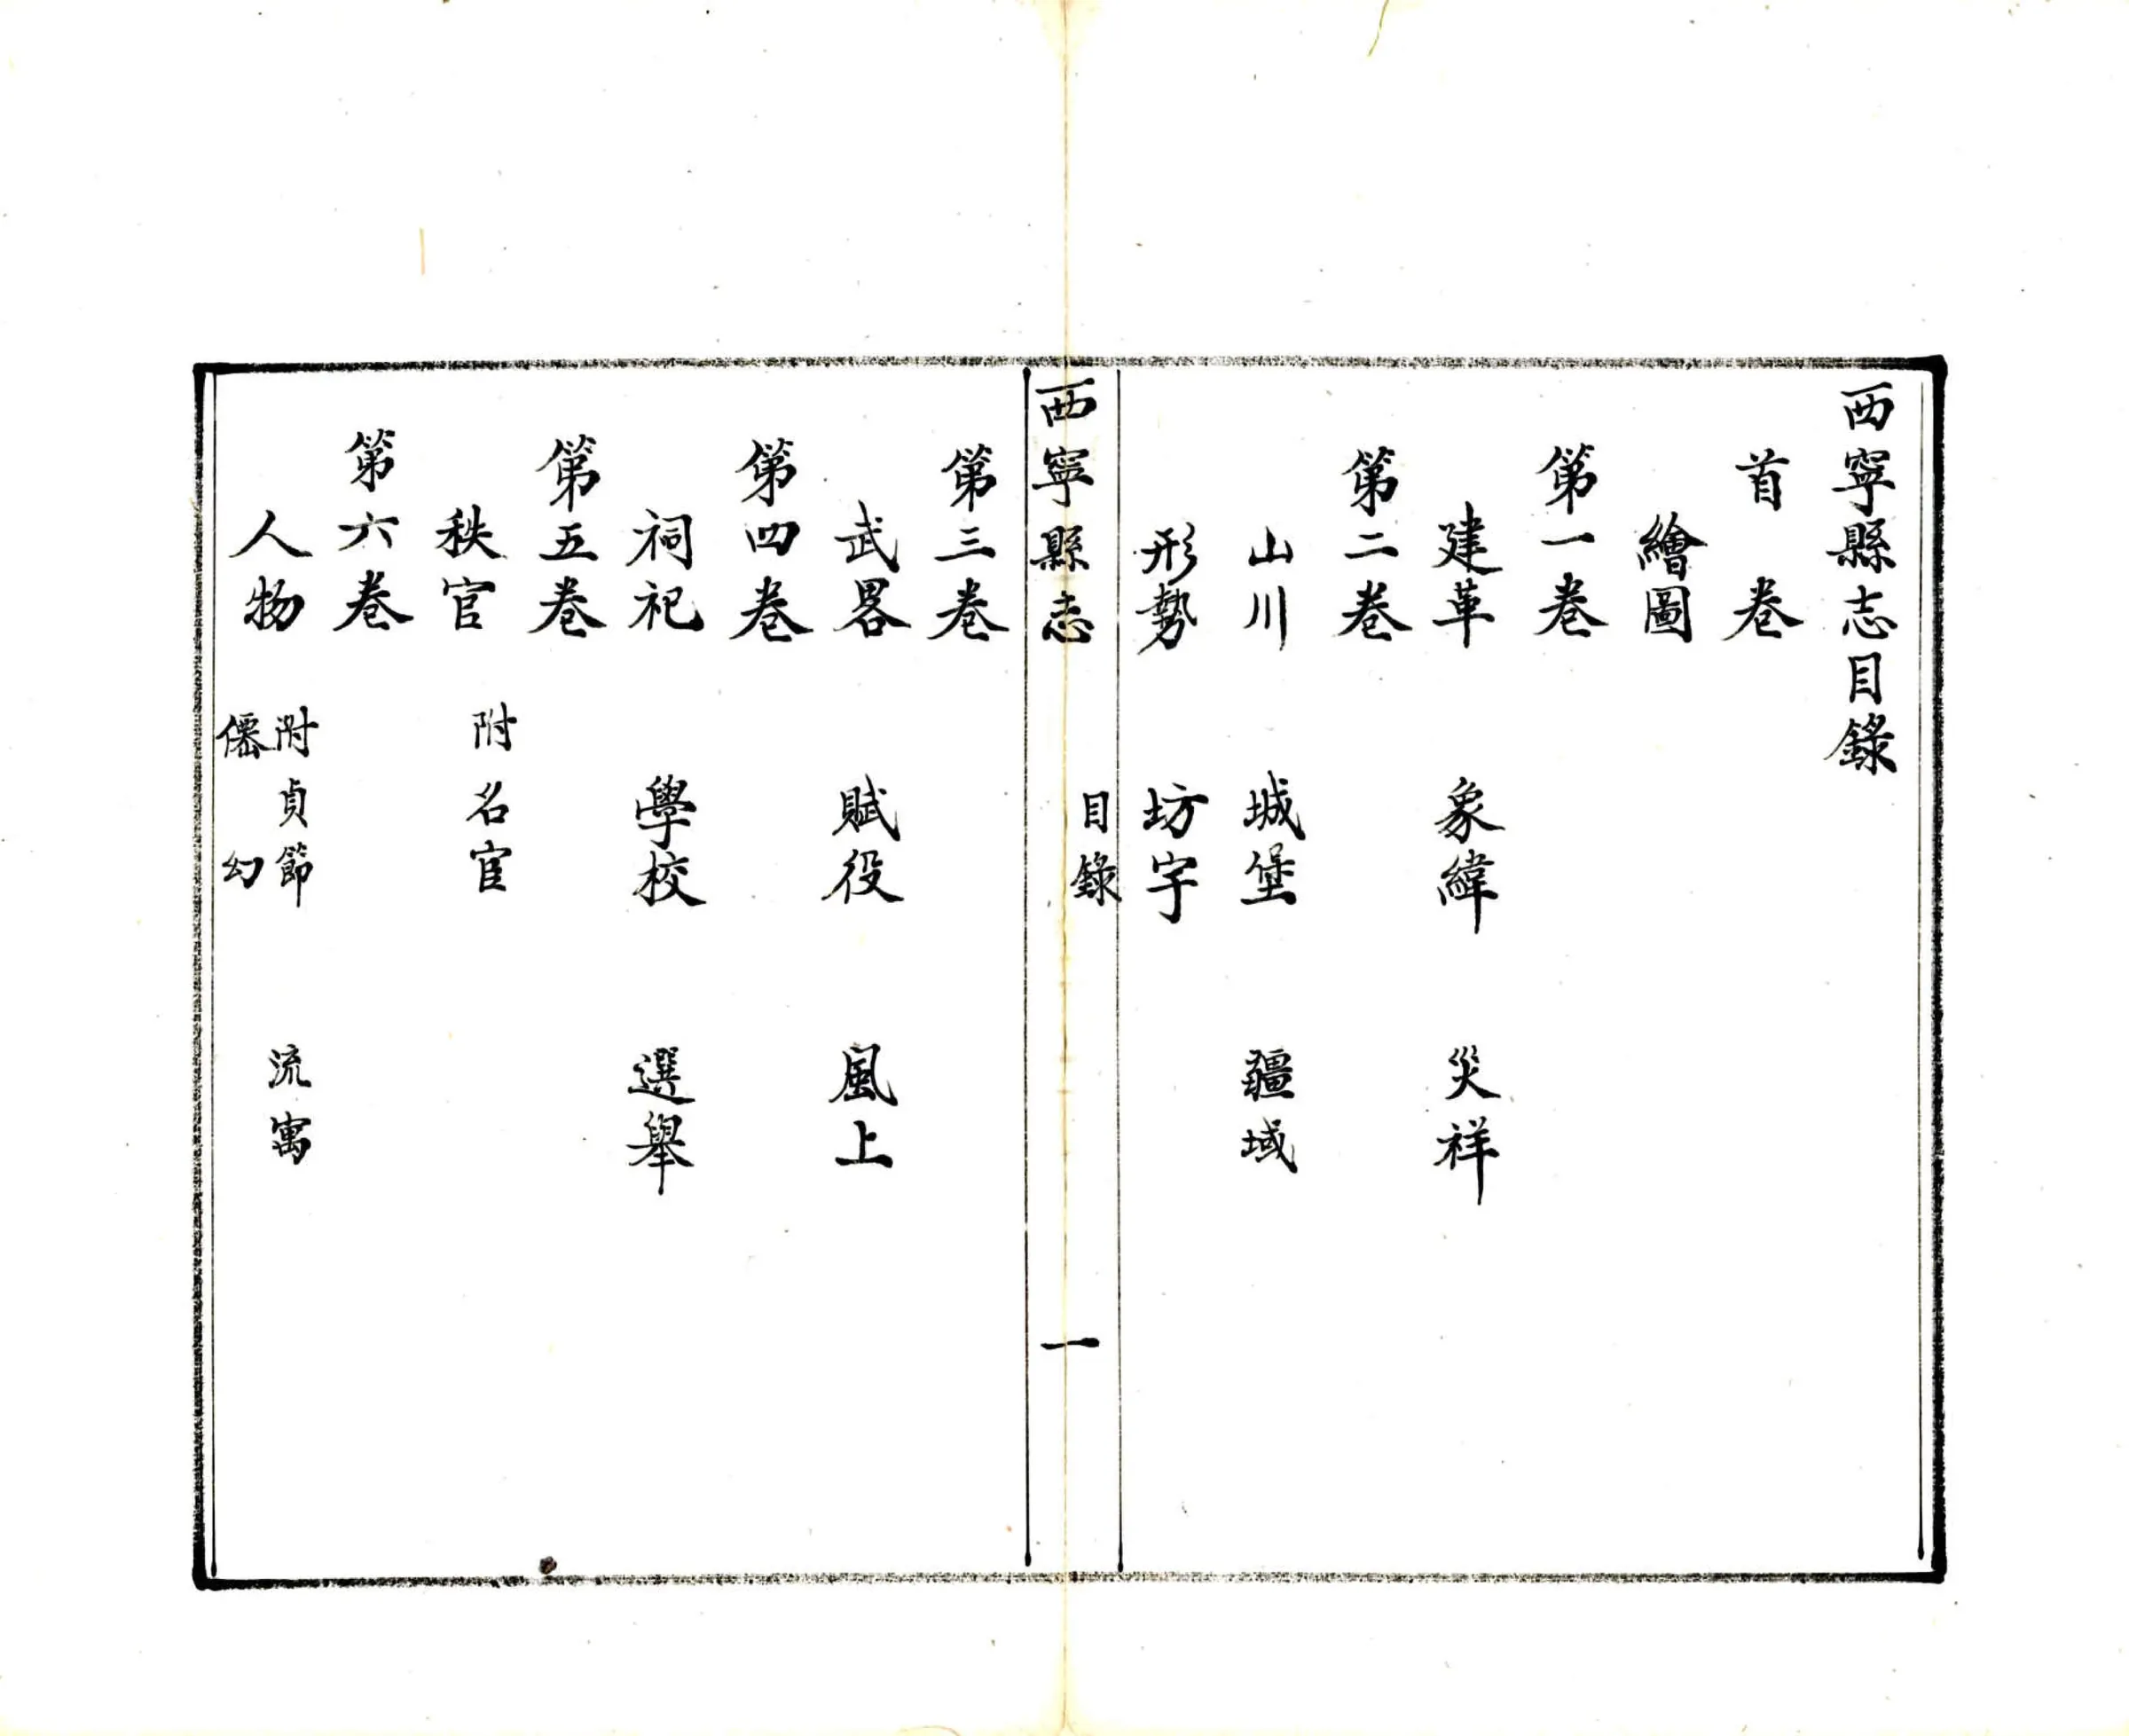 西寧縣志目錄
首　卷
繪圖
第一卷
建革　象緯　災祥
第二卷
山川　城堡　疆域
形勢　坊宇
西寧縣志　目錄　一
第三卷
武畧　賦役　風上
第四卷
祠祀　學校　選舉
第五卷
秩官　附名宦
第六卷
人物　附貞節　流寓
僊　幻